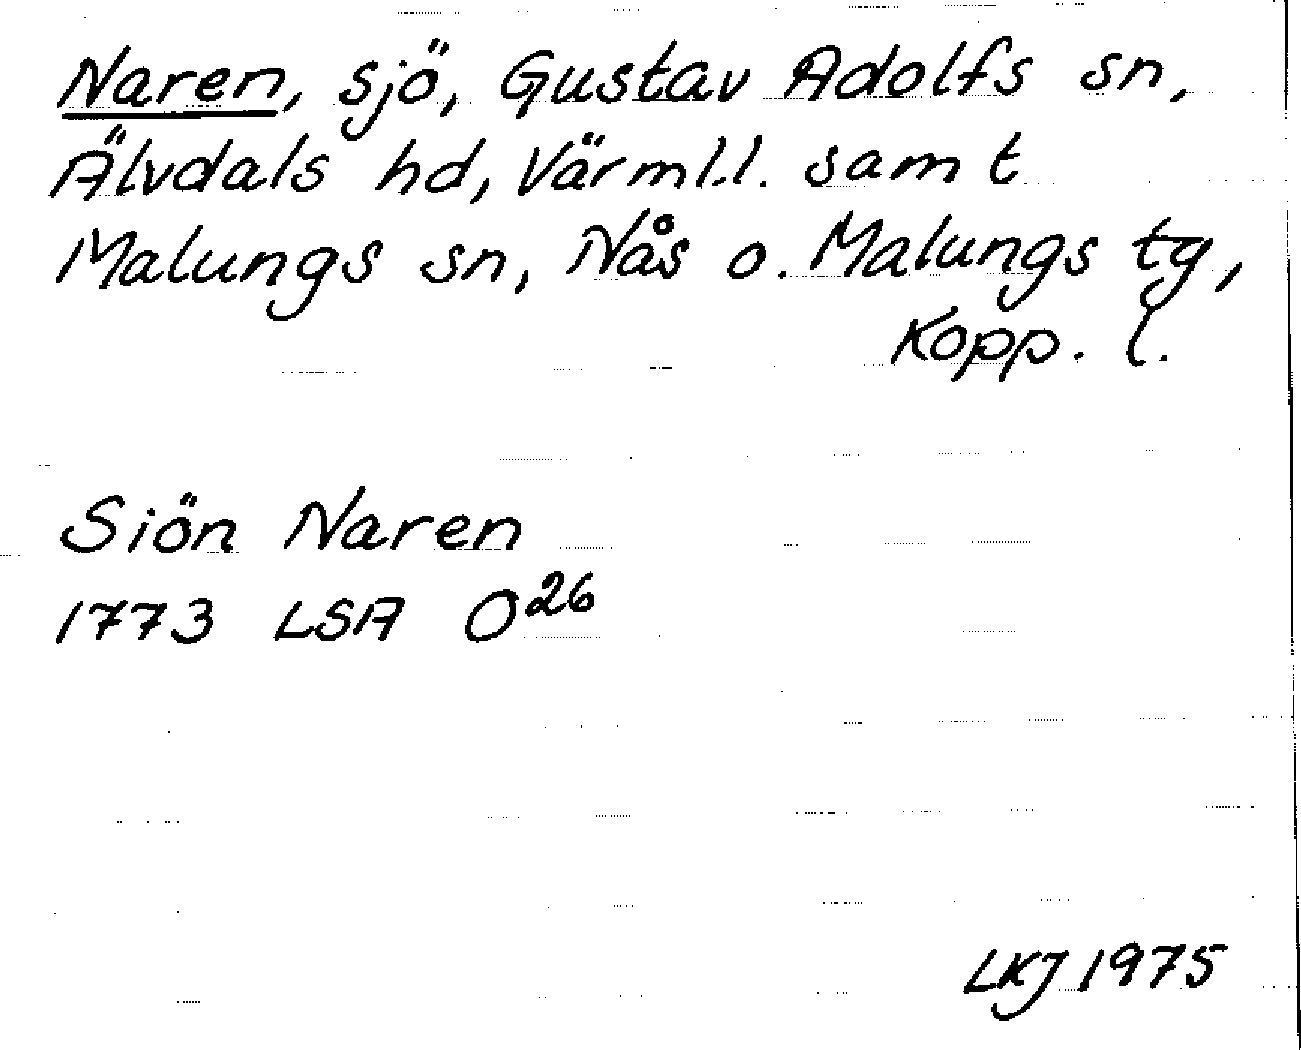 Naren, sjö, Gustav Adolfs sn,
Älvdals hd, Värml.l. samt
Malungs sn, Nås o. Malungs tg,
Kopp. l.
Siön Naren
1773 LSA O²⁶
LKJ 1975